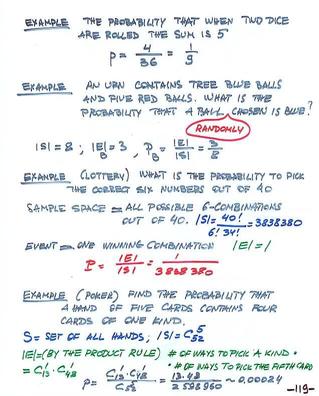 EXAMPLE THE PROBABILITY THAT WHEN TWO DICE
ARE ROLLED THE SUM IS 5
P = 4/36 = 1/9
EXAMPLE AN URN CONTAINS TREE BLUE BALLS
AND FIVE RED BALLS. WHAT IS THE
PROBABILITY THAT A BALL CHOSEN IS BLUE?
RANDOMLY
|S| = 8 ; |E|_B = 3 , P_B = |E|/|S| = 3/8
EXAMPLE (LOTTERY) WHAT IS THE PROBABILITY TO PICK
THE CORRECT SIX NUMBERS OUT OF 40
SAMPLE SPACE = ALL POSSIBLE 6-COMBINATIONS
OUT OF 40. |S| = 40!/6! 34! = 3838380
EVENT = ONE WINNING COMBINATION |E| = 1
P = |E|/|S| = 1/3838380
EXAMPLE (POKER) FIND THE PROBABILITY THAT
A HAND OF FIVE CARDS CONTAINS FOUR
CARDS OF ONE KIND.
S = SET OF ALL HANDS; |S| = C_52^5
|E| = (BY THE PRODUCT RULE) # OF WAYS TO PICK A KIND •
• # OF WAYS TO PICK THE FIFTH CARD
= C_13^1 • C_48^1
P = C_13^1 • C_48^1 / C_52^5 = 13•48/2598960 ~ 0.00024
-119-